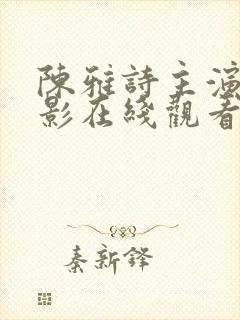 陳雅詩主演
影在綫觀看
秦新鋒